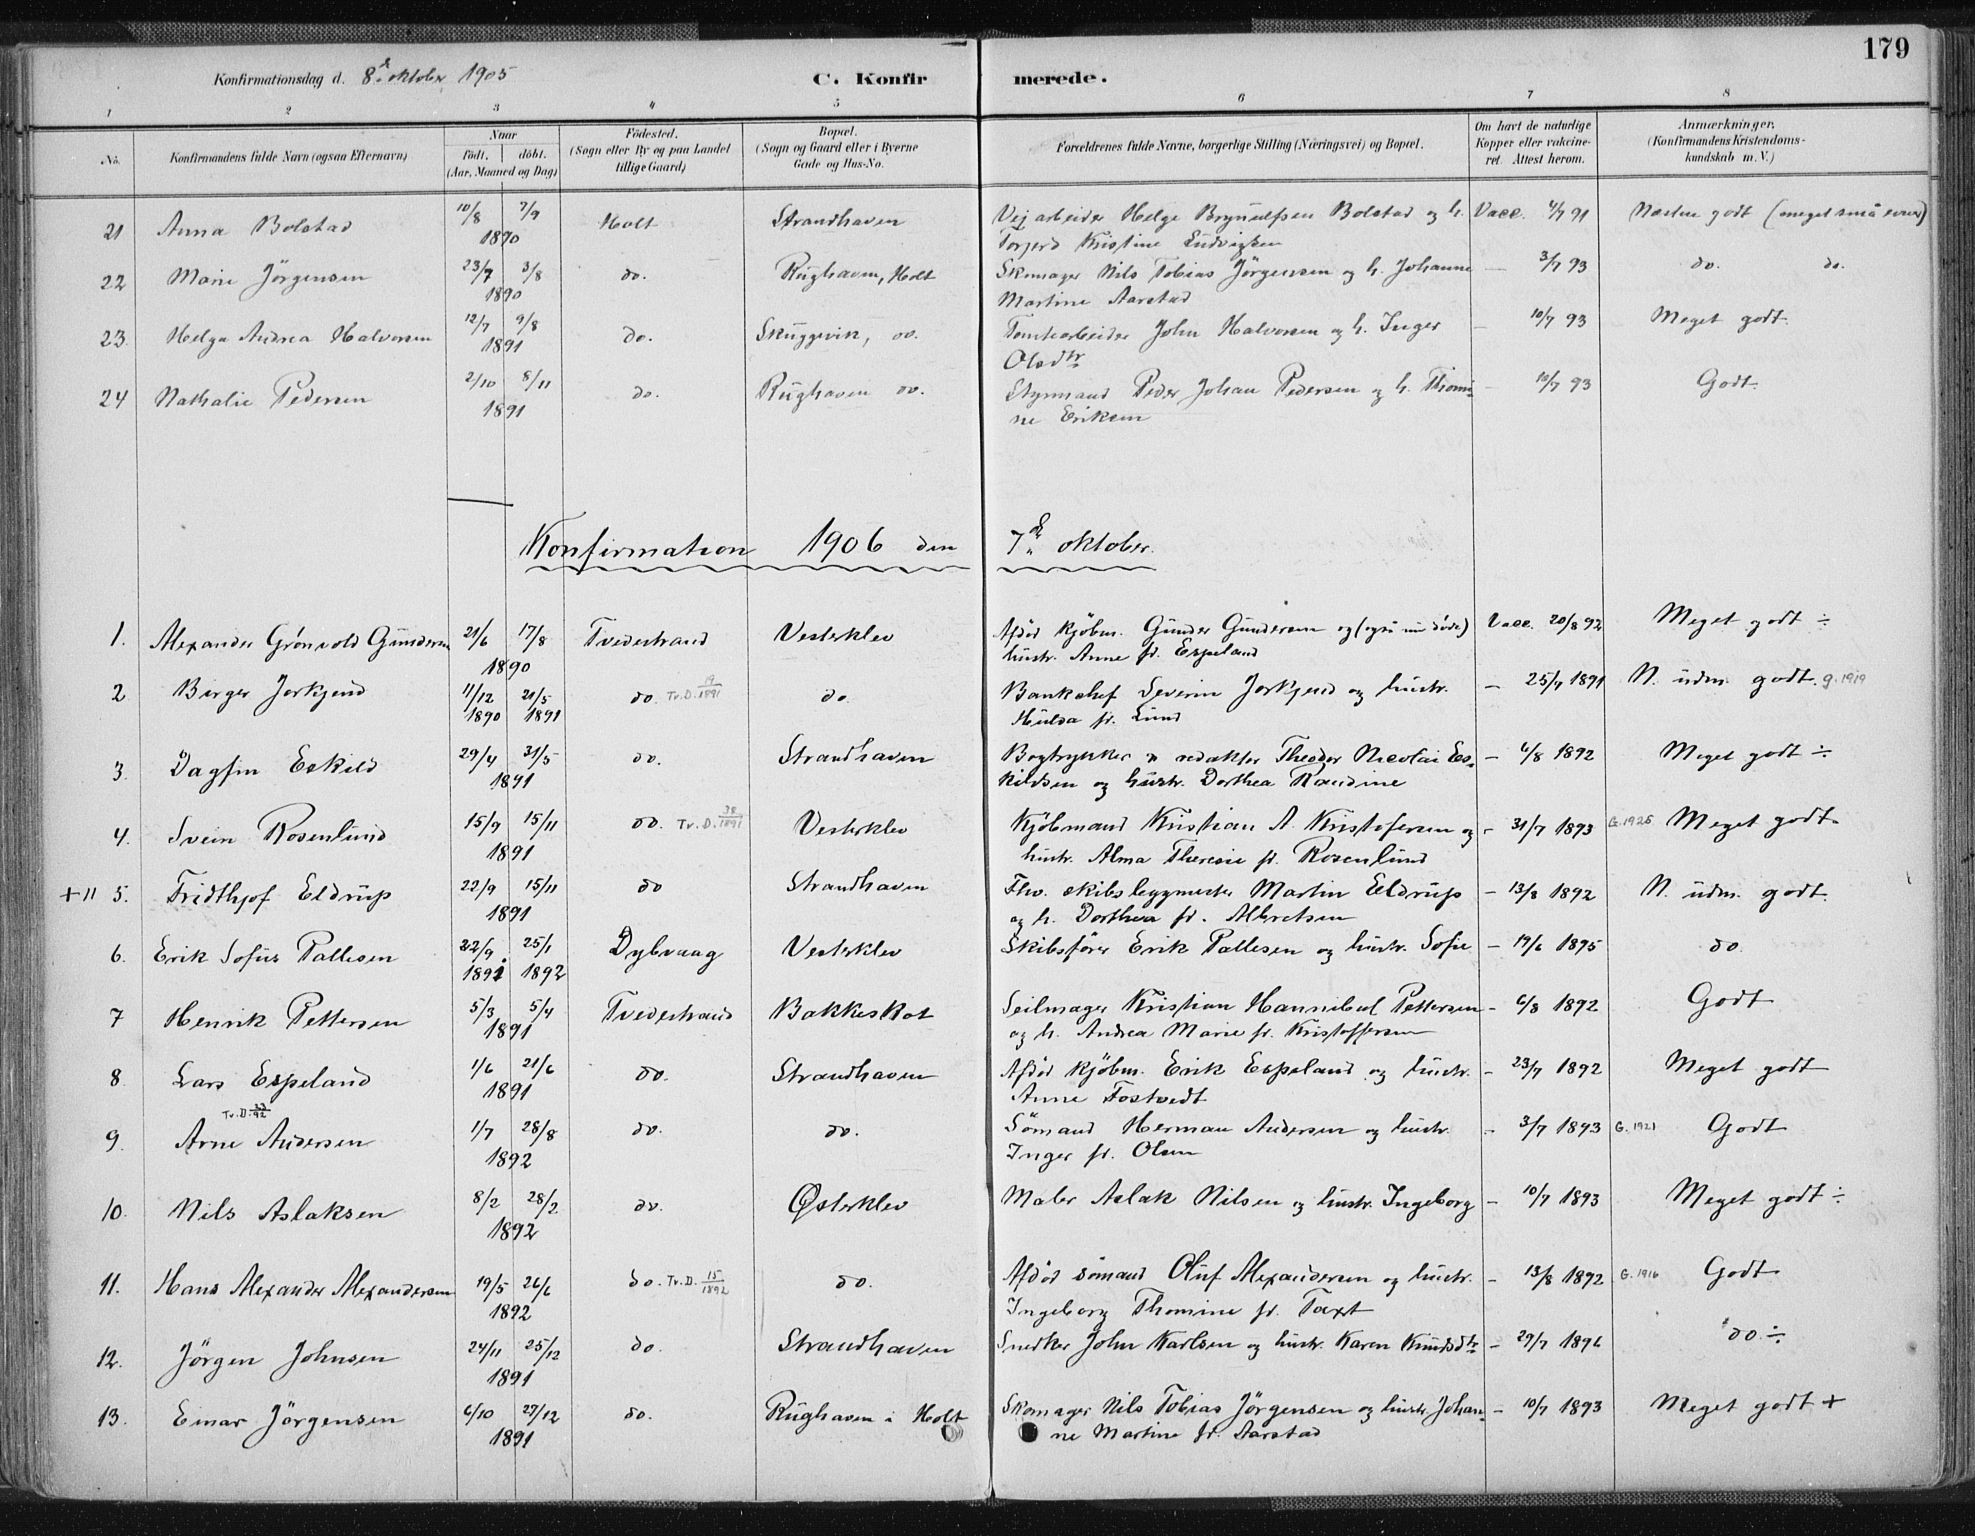 179
Konfirmationsdag d. 8de oktober 1905 C. Konfirmerede.
1 2 3 4 5 6 7 8
No. Konfirmandens fulde Navn (ogsaa Efternavn) Naar født. døbt. (Aar, Maaned og Dag) Fødested. (Sogn eller By og paa Landet tillige Gaard) Bopæl. (Sogn og Gaard eller i Byerne Gade og Hus-No. Forældrenes fulde Navne, borgerlige Stilling (Næringsvei) og Bopæl. Om havt de naturlige Kopper eller vakcineret. Attest herom. Anmærkninger. (Konfirmandens Kristendomskundskab m. V.)
21 Anna Bolstad 10/8 7/9 Holt Strandhaven Vejarbeider Helge Brynulfsen Bolstad og h. Vacc. 4/7 91 Næsten godt (meget små evner)
1890 Torjerd Kristine Ludvigsen
22 Marie Jörgensen 23/7 3/8 do. Rughaven, Holt Skomager Nils Tobias Jörgensen og h. Johanne — 3/7 93 do. do.
1890 Martine Aarstad
23. Helga Andrea Halvorsen 12/7 9/8 do. Skuggevik, do. Tomtearbeider John Halvorsen og h. Inger — 10/7 93 Meget godt.
1891 Olsdtr
24 Nathalie Pedersen 2/10 8/11 do. Rughaven do. Styrmand Peder Johan Pedersen og h. Thomi- — 10/7 93 Godt.
1891 ne Eriksen
Konfirmation 1906 den 7de oktober.
1. Alexander Grönvold Gundersen 21/6 17/8 Tvedestrand Vesterklev Afdöd kjöbm. Gunder Gundersen og (også nu döde) Vacc. 20/8 92 Meget godt ÷
1890 hustr. Anne f. Espeland
2 Birger Jorkjend 11/12 21/5 do Tv.D. 19/1891 do. Bankchef Severin Jorkjend og hustr. — 25/7 1891 N. udm. godt. g.1919
1890 1891 Hulda f. Lund
3. Dagfin Eskild 29/4 31/5 do. Strandhaven Bogtrykker & redaktör Theodor Nicolai Es- — 6/8 1892 Meget godt ÷
1891 kildsen og hustr. Dorthea Raudine
4. Svein Rosenlund 15/9 15/11 do. Tv.D. 38/1891 Vesterklev Kjöbmand Kristian A. Kristofersen og — 31/7 1893 G.1925 Meget godt.
1891 hustr. Alma Theresie f. Rosenlund
+11 5. Fridthjof Eldrup 22/9 15/11 do Strandhaven Fhv. skibsbygmester Martin Eldrup — 13/8 1892 N. udm. godt.
1891 og h. Dorthea f. Albretsen
6. Erik Sofus Pallesen 22/9 25/1 Dybvaag Vesterklev Skibsförer Erik Pallesen og hustr. Sofie — 19/6 1895 do
1891 1892
7 Henrik Pettersen 5/3 5/4 Tvedestrand Bakkeskot Seilmager Kristian Hannibal Pettersen — 6/8 1892 Godt
1891 og h. Andrea Marie f. Kristoffersen
8. Lars Espeland 1/6 21/6 do. Strandhaven Afdöd kjöbm. Erik Espeland og hustr. — 23/7 1892 Meget godt
1891 Anne Fostvedt
Tv.D. 33/92
9. Arne Andersen 1/7 28/8 do. do. Sömand Herman Andersen og hustr. — 3/7 1893 G.1921 Godt
1892 Inger f. Olsen
10. Nils Aslaksen 8/2 28/2 do. Østerklev Maler Aslak Nilsen og hustr. Ingeborg — 10/7 1893 Meget godt ÷
1892
11. Hans Alexander Alexandersen 19/5 26/6 do. Tv.D. 15/1892 do. Afdöd sömand Oluf Alexandersen og hustr. — 13/8 1892 G.1916 Godt
1892 Ingeborg Thomine f. Taxt
12. Jörgen Johnsen 24/11 25/12 do. Strandhaven Snedker John Karlsen og hustr. Karen Knudsdtr — 29/7 1896 do. ÷
1891
13. Einar Jörgensen 6/10 27/12 do. Rughaven i Holt Skomager Nils Tobias Jörgensen og hustr. Johan- — 10/7 1893 Meget godt +
1891 ne Martine f. Aarstad